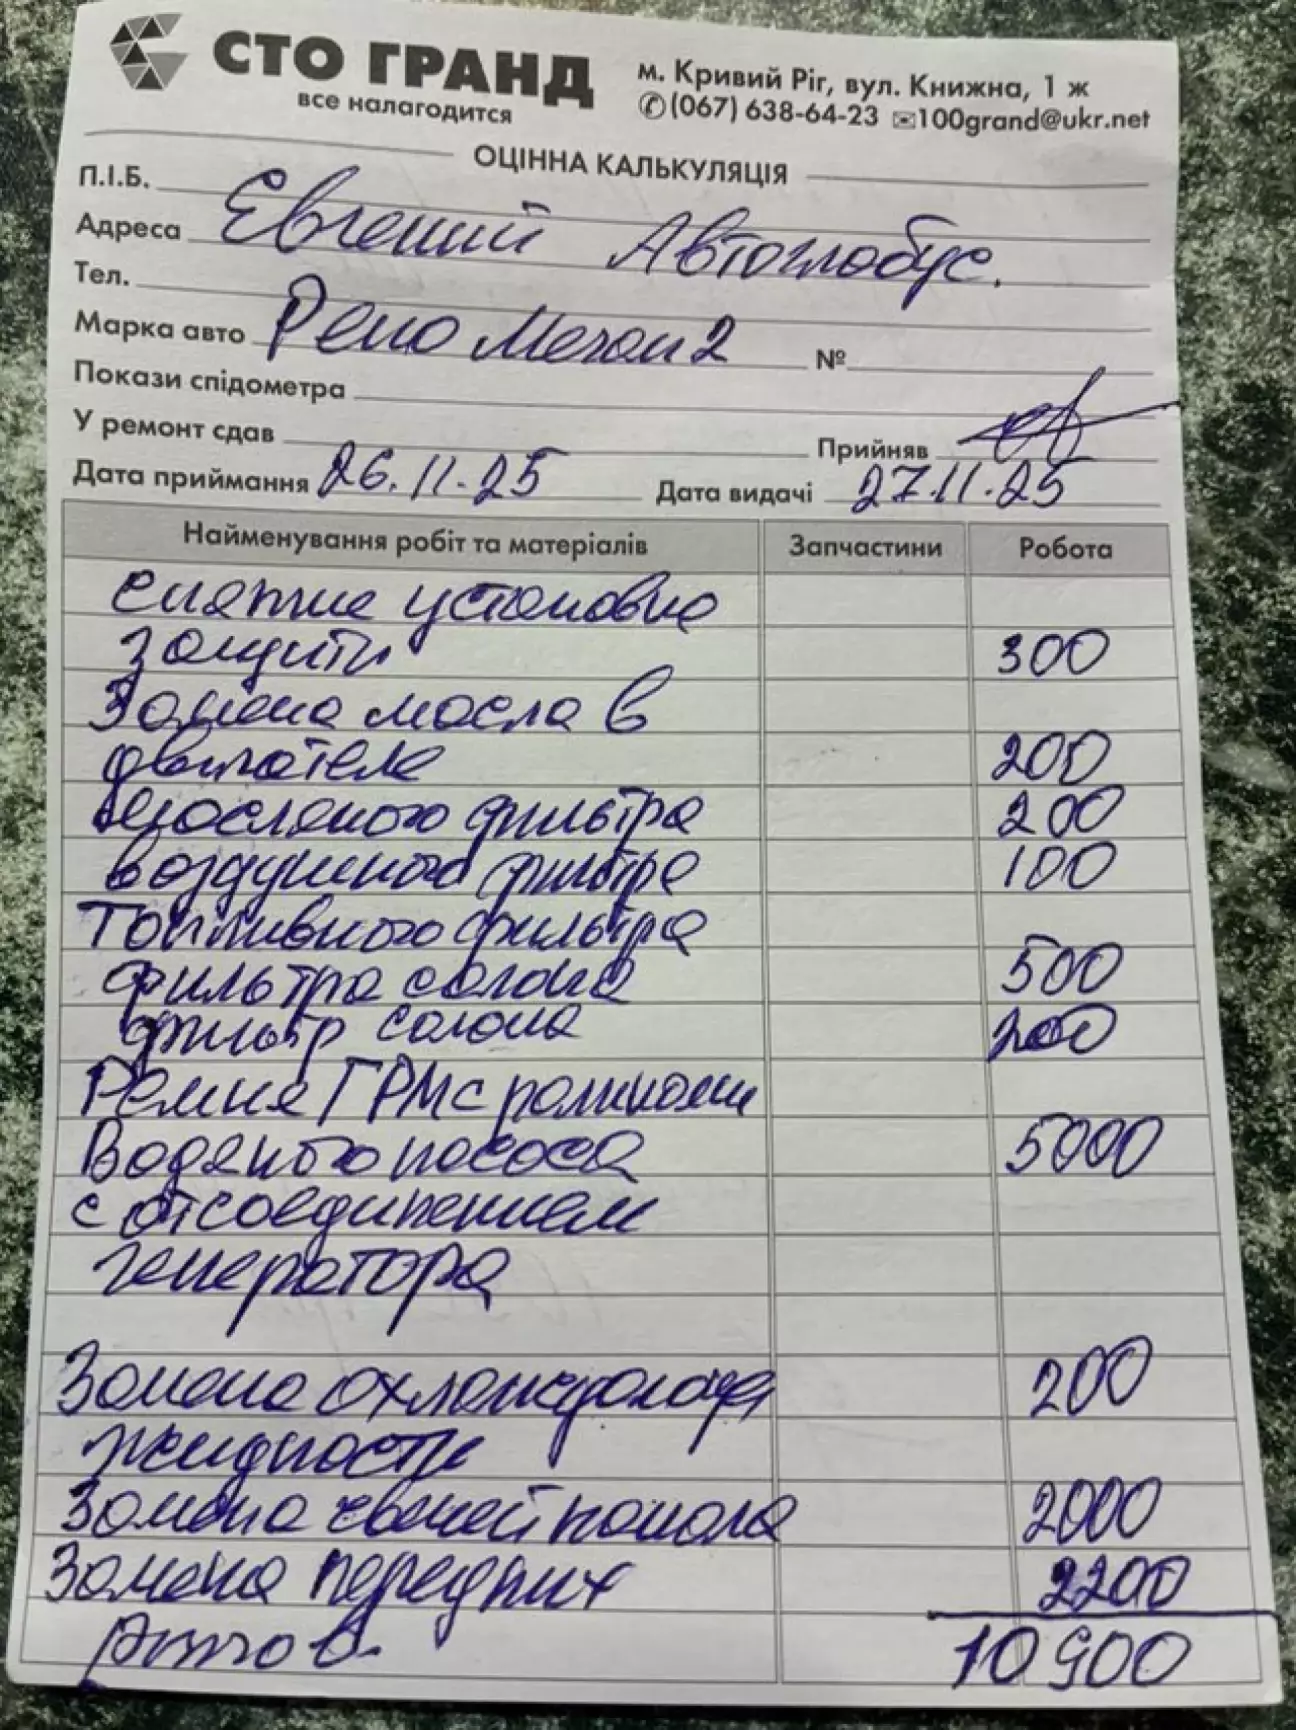 СТО ГРАНД
все налагодится
м. Кривий Ріг, вул. Книжна, 1 ж
(067) 638-64-23 100grand@ukr.net
ОЦІННА КАЛЬКУЛЯЦІЯ
П.І.Б.
Адреса Евгений Автоглобус.
Тел.
Марка авто Рено Меган 2 №
Покази спідометра
У ремонт сдав Прийняв
Дата приймання 26.11.25 Дата видачі 27.11.25
Найменування робіт та матеріалів Запчастини Робота
снятие установка
защиты 300
Замена масла в
двигателе 200
масляного фильтра 200
воздушного фильтра 100
Топливного фильтра
фильтра салона 500
фильтр салона 200
Ремня ГРМ с роликами
Водяного насоса 5000
с отсоединением
генератора
Замена охлаждающей 200
жидкости
Замена свечей накала 2000
Замена передних 2200
рычагов. 10900